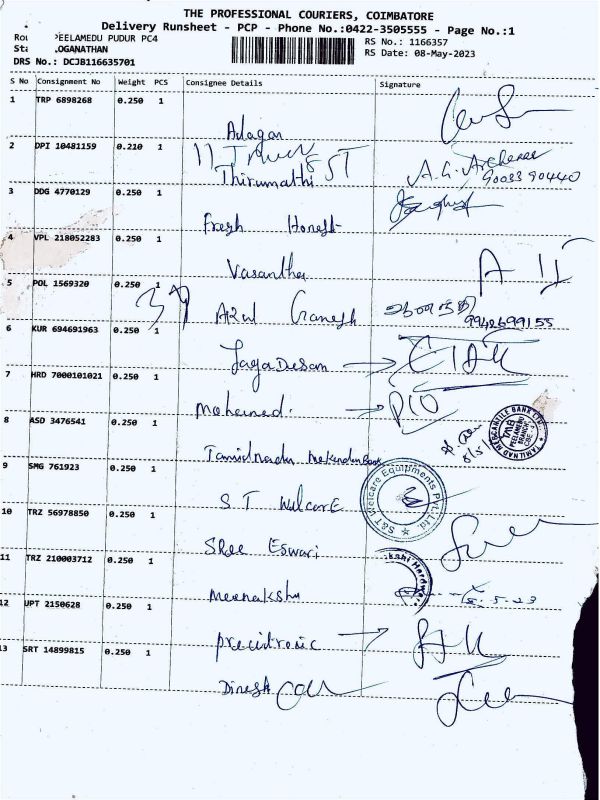 THE PROFESSIONAL COURIERS, COIMBATORE
Delivery Runsheet - PCP - Phone No.:0422-3505555 - Page No.:1
EELAMEDU PUDUR PC4 RS No.: 1166357
OGANATHAN RS Date: 08-May-2023
DRS No.: DCJB116635701
S No Consignment No Weight PCS Consignee Details Signature
1 TRP 6898268 0.250 1
Alagar
2 DPI 10481159 0.210 1
Thirumathi A.G. Archana
9003390440
3 DDG 4770129 0.250 1
Fresh Honest
4 VPL 218052283 0.250 1
Vasantha
5 POL 1569320 0.250 1
39 Arul Ganesh 9942699155
6 KUR 694691963 0.250 1
Jagadesan
7 HRD 7000101021 0.250 1
Mohamed.
8 ASD 3476541 0.250 1
TAMILNAD MERCANTILE BANK LTD.
TMB
PEELAMEDU
BRANCH
CBE
Tamilnadu Merkendun Bank
9 SMG 761923 0.250 1
S&T Welcare Equipments Pvt.Ltd
S T Welcare
10 TRZ 56978850 0.250 1
SRee Eswari
11 TRZ 210003712 0.250 1
kshi Hardware
Meenakshi 8.5.23
12 UPT 2150628 0.250 1
precidtronic
13 SRT 14899815 0.250 1
Dinesh